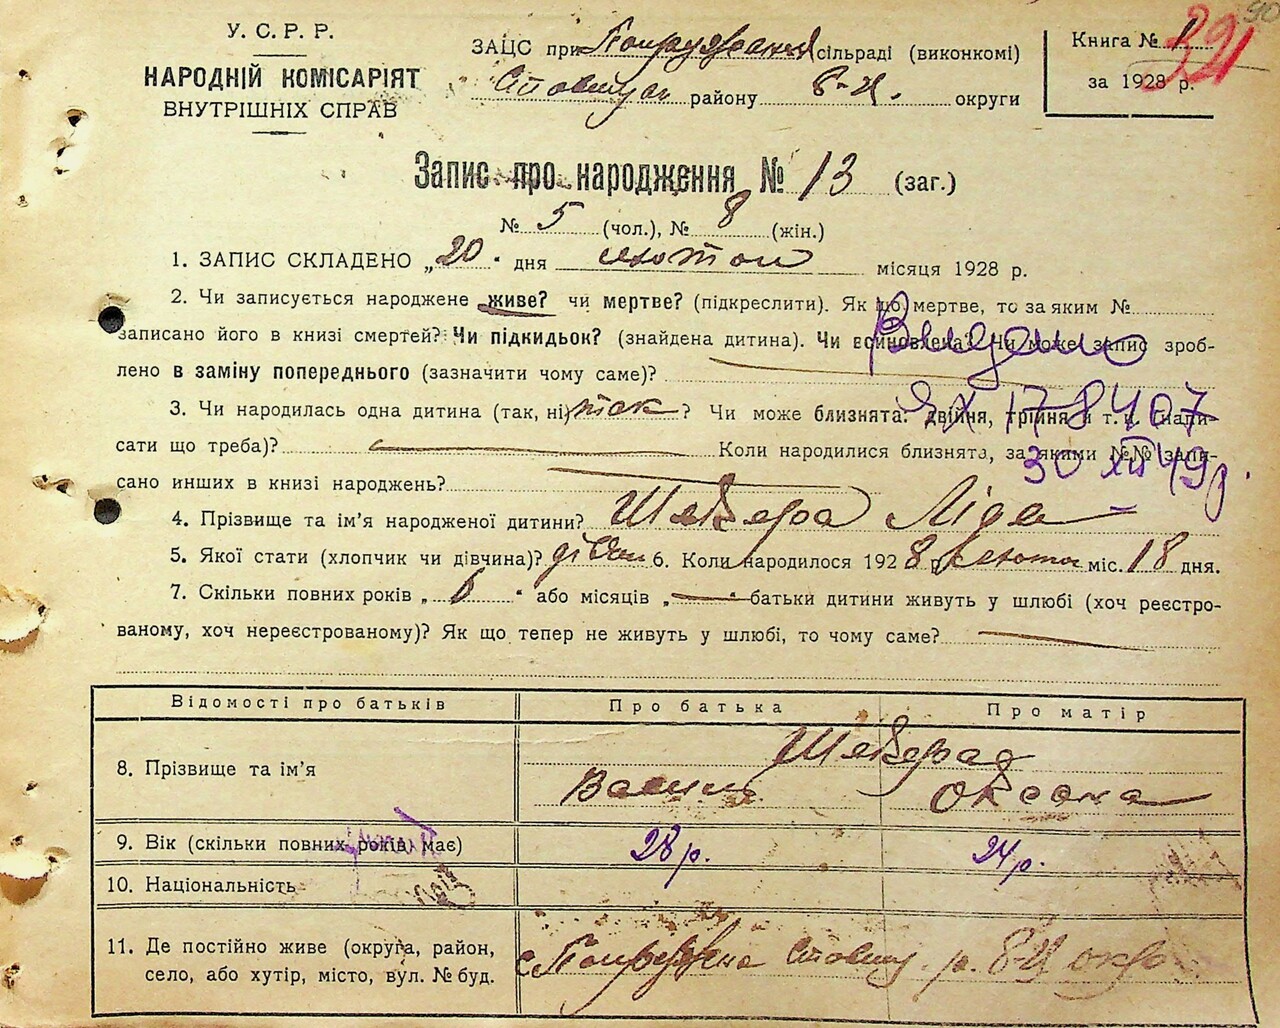 У. С. Р. Р.
НАРОДНІЙ КОМІСАРІЯТ
ВНУТРІШНІХ СПРАВ
ЗАЦС при сільраді (виконкомі)
району Б-Ц. округи
Книга № 1
за 1928 р.
321
90
Запис про народження № 13 (заг.)
№ 5 (чол.), № 8 (жін.)
1. ЗАПИС СКЛАДЕНО „20" дня лютого місяця 1928 р.
2. Чи записується народжене живе? чи мертве? (підкреслити). Як що мертве, то за яким №
записано його в книзі смертей? Чи підкидьок? (знайдена дитина). Чи всиновлена? Чи може запис зроб-
лено в заміну попереднього (зазначити чому саме)?
Видано
178407
30 XII 49 р.
3. Чи народилась одна дитина (так, ні) так? Чи може близнята: двійня, трійня и т. и. (напи-
сати що треба)? Коли народилися близнята, за якими №№ запи-
сано инших в книзі народжень?
4. Прізвище та ім'я народженої дитини? Шевера Ліда
5. Якої стати (хлопчик чи дівчина)? дівч 6. Коли народилося 1928 р. лютого міс. 18 дня.
7. Скільки повних років „6" або місяців „—" батьки дитини живуть у шлюбі (хоч реєстро-
ваному, хоч нереєстрованому)? Як що тепер не живуть у шлюбі, то чому саме?
Відомості про батьків Про батька Про матір
8. Прізвище та ім'я
Василь Оксана
9. Вік (скільки повних років має) 28 р. 24 р.
10. Національність
11. Де постійно живе (округа, район,
село, або хутір, місто, вул. № буд.
с. р. Б-Ц округ